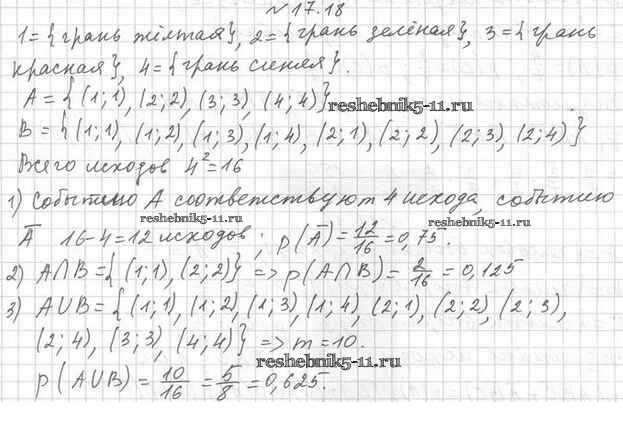 №17.18
1={грань жёлтая}, 2={грань зелёная}, 3={грань
красная}, 4={грань синяя}.
A={(1;1), (2;2), (3;3), (4;4)}
reshebnik5-11.ru
B={(1;1), (1;2), (1;3), (1;4), (2;1), (2;2), (2;3), (2;4)}
Всего исходов 4²=16
1) Событию A соответствуют 4 исхода, событию
reshebnik5-11.ru reshebnik5-11.ru
Ā 16-4=12 исходов; p(Ā)=12/16=0,75.
2) A∩B={(1;1), (2;2)} => p(A∩B)=2/16=0,125
3) A∪B={(1;1), (1;2), (1;3), (1;4), (2;1), (2;2), (2;3),
(2;4), (3;3), (4;4)} => m=10.
reshebnik5-11.ru
p(A∪B)=10/16=5/8=0,625.